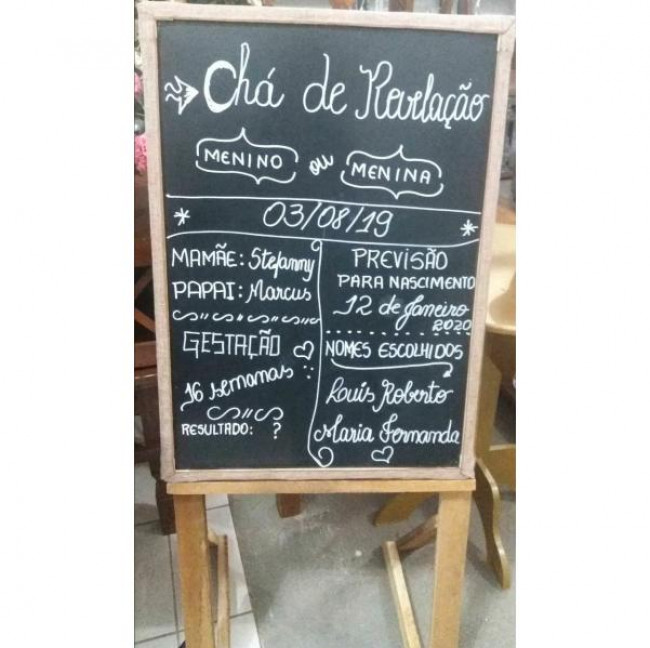 Chá de Revelação
MENINO ou MENINA
03/08/19
MAMÃE: Stefanny
PAPAI: Marcus
GESTAÇÃO
16 semanas
RESULTADO: ?
PREVISÃO
PARA NASCIMENTO
12 de Janeiro
2020
NOMES ESCOLHIDOS
Louis Roberto
Maria Fernanda